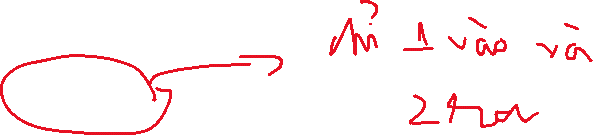 chỉ 1 vào và
2 ra